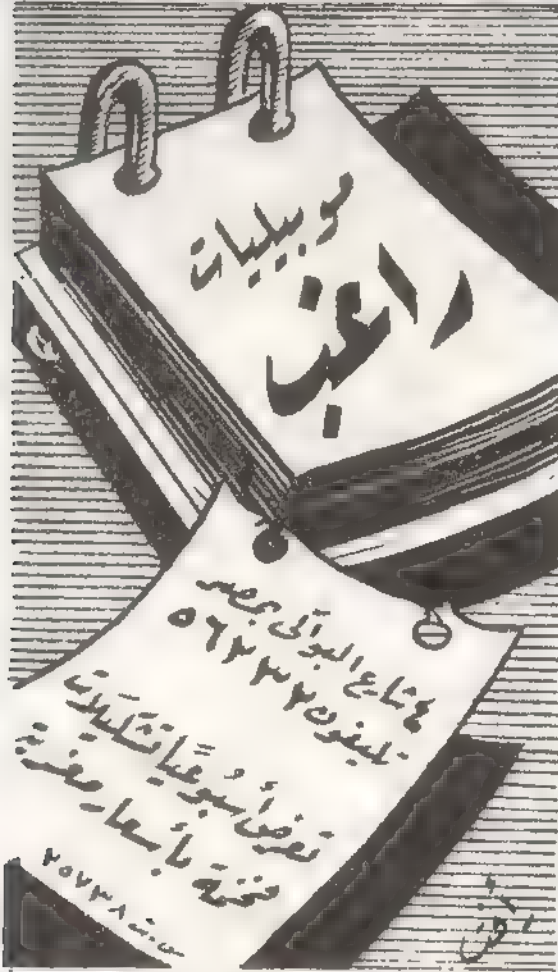 موبيليات
راغب
٤ شارع البواكى بمصر
تليفون
تعرض أسبوعياً تشكيلات
فخمة بأسعار مغرية
س.ت ٢٥٧٣٨